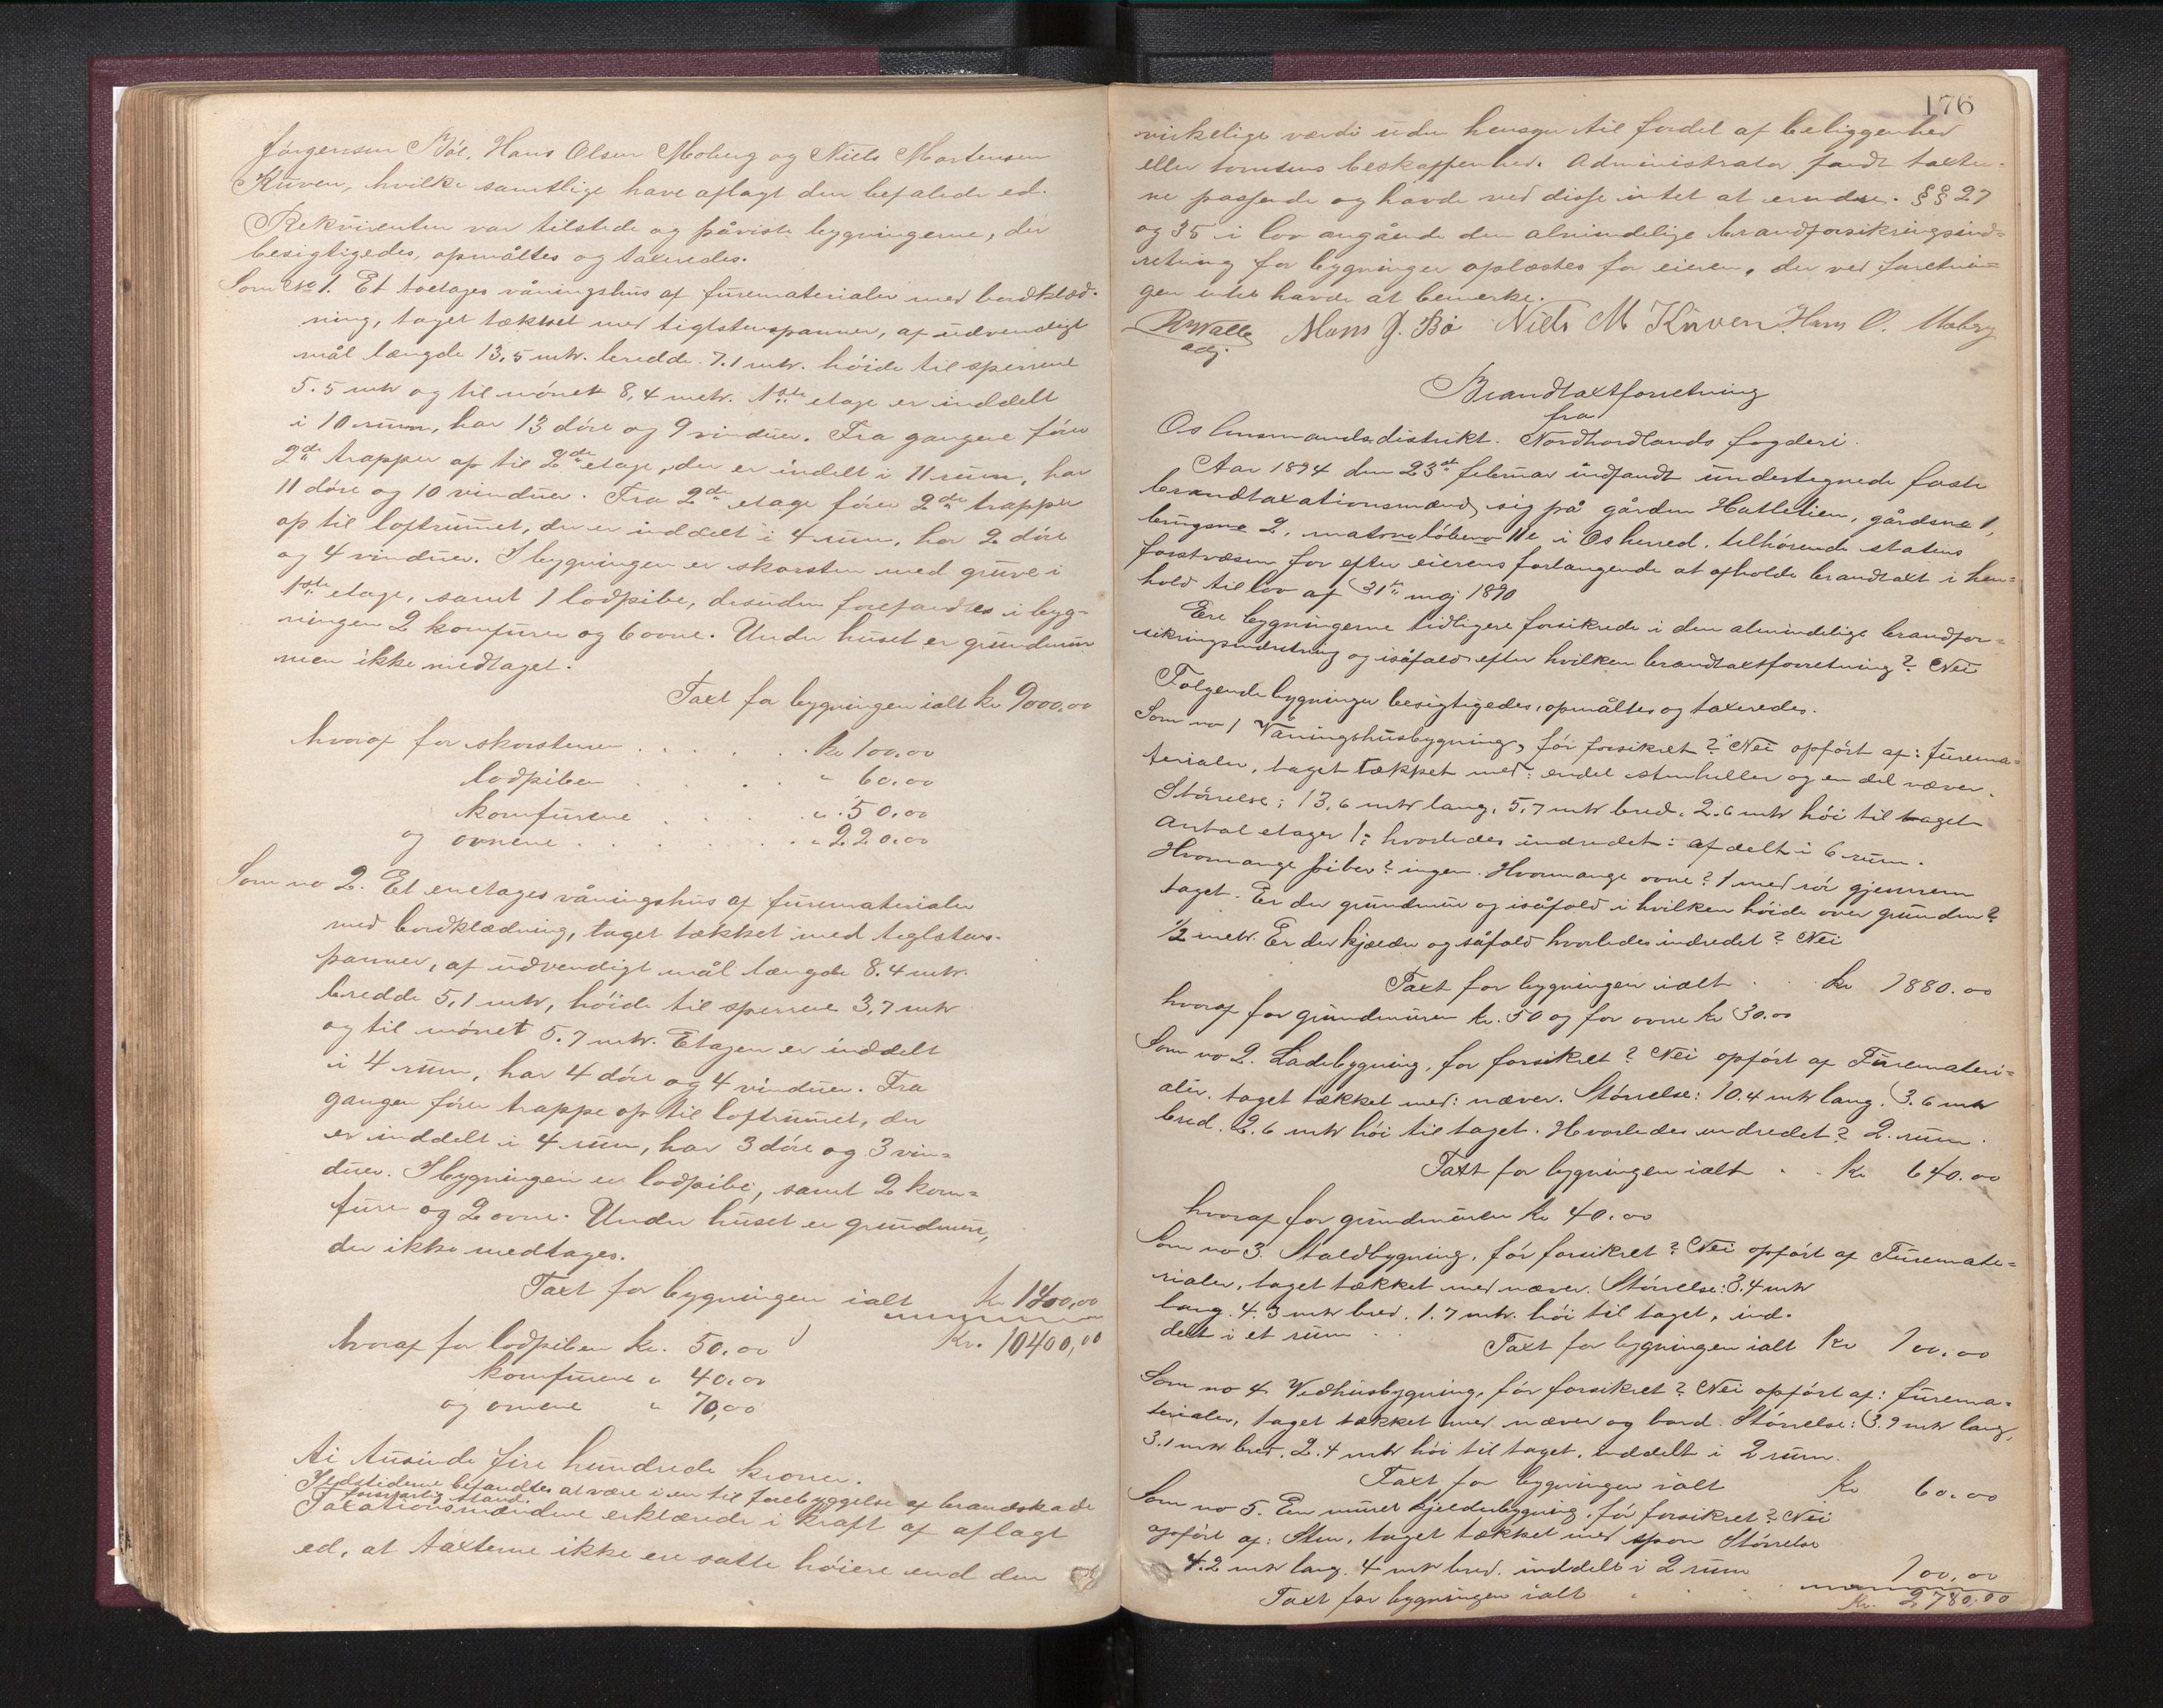 Jörgensen Böe, Hans Olsen Moberg og Niels Mortensen
Kuven, hvilke samtlige have aflagt den befalede ed.
Rekvirenten var tilstede og påviste bygningerne, der
besigtigedes, opmåltes og taxeredes.
Som No 1. Et toetages våningshus af furematerialer med bordklæd-
ning, taget tækket med tiglstenspanner, af udvendigt
mål længde 13,5 mtr. bredde 7.1 mtr. höide til sperrene
5.5 mtr og til mönet 8,4 metr. 1ste etage er inddelt
i 10 rum, har 13 döre og 9 vinduer. Fra gangene förer
2de trapper op til 2den etage, der er indelt i 11 rum, har
11 döre og 10 vinduer. Fra 2den etage förer 2de trapper
op til loftrummet, der er inddelt i 4 rum, har 2 döre
og 4 vinduer. I bygningen er skorsten med gruve i
1ste etage, samt 1 lodpibe, desuden forefandtes i byg-
ningen 2 komfurer og 6 ovne. Under huset er grundmur
men ikke medtaget.
Taxt for bygningen ialt kr 9000,00
hvoraf for skorstenen . . . . . kr 100,00
lodpiben . . . . " 60.00
komfurene . . . . " 50.00
og ovnene . . . . . . " 220.00
Som no 2. Et enetages våningshus af furematerialer
med bordklædning, taget tækket med teglstens-
panner, af udvendigt mål længde 8.4 mtr.
bredde 5,1 mtr, höide til sperrene 3,7 mtr
og til mönet 5.7 mtr. Etagen er inddelt
i 4 rum, har 4 döre og 4 vinduer. Fra
gangen förer trappe op til loftrummet, der
er inddelt i 4 rum, har 3 döre og 3 vin-
duer. I bygningen er lodpibe, samt 2 kom-
furer og 2 ovne. Under huset er grundmur,
der ikke medtages.
Taxt for bygningen ialt kr 1400,00
hvoraf for lodpiben kr. 50.00 Kr. 10400,00
komfurene " 40.00
og ovnene " 70,00
ti tusinde fire hundrede kroner.
Ildstederne befandtes at være i en til forebyggelse af brandskade
forsvarlig stand.
Taxationsmændene erklærede i kraft af aflagt
ed, at taxterne ikke ere satte höiere end den
176
virkelige værdi uden hensyn til fordel af beliggenhed
eller tomtens beskaffenhed. Administrator fandt taxter-
ne passende og havde ved disse intet at erindre. §§ 27
og 35 i lov angående den almindelige brandforsikringsind-
retning for bygninger oplæstes for eieren, der ved forretnin-
gen intet havde at bemerke.
adj. Mons J. Bö Niels M Kuven Hans O. Moberg
Brandtaxtforretning
fra
Os lensmandsdistrikt. Nordhordlands fogderi.
Aar 1894 den 23de februar indfandt undertegnede faste
brandtaxationsmænd sig på gården Hatlelien, gårdsno 1,
brugsno 2, matrno löbeno 11e i Os herred, tilhörende statens
forstvæsen for efter eierens forlangende at afholde brandtaxt i hen-
hold til lov af 31te maj 1890
Ere bygningerne tidligere forsikrede i den almindelige brandfor-
sikringsindretning og isåfald efter hvilken brandtaxtforretning? Nei
Fölgende bygninger besigtigedes, opmåltes og taxeredes.
Som no 1 Våningshusbygning, för forsikret? Nei opfört af: furema-
terialer, taget tækket med: endel stenheller og en del næver.
Störrelse: 13,6 mtr lang, 5,7 mtr bred, 2.6 mtr höi til taget
Antal etager 1; hvorledes indredet: afdelt i 6 rum.
Hvormange piber? ingen. Hvormange ovne? 1 med rör gjennem
taget. Er der grundmur og isåfald i hvilken höide over grunden?
1/2 metr. Er der kjælder og såfald hvorledes indredet? Nei
Taxt for bygningen ialt . kr 1880.00
hvoraf for grundmuren kr. 50 og for ovne kr 30.00
Som no 2. Ladebygning, för forsikret? Nei opfört af Furemateri-
aler, taget tækket med: næver. Störrelse: 10.4 mtr lang. 3.6 mtr
bred. 2.6 mtr höi til taget. Hvorledes indredet? 2 rum.
Taxt for bygningen ialt . . Kr 640.00
hvoraf for grundmuren kr 40.00
Som no 3. Staldbygning, för forsikret? Nei opfört af Furemate-
rialer, taget tækket med næver. Störrelse: 3.4 mtr
lang. 4.3 mtr bred. 1.7 mtr. höi til taget, ind-
delt i et rum . .
Taxt for bygningen ialt kr 100.00
Som no 4 Vedhusbygning, för forsikret? Nei opfört af: furema-
terialer, taget tækket med næver og bord. Störrelse: 3.9 mtr lang,
3.1 mtr bred, 2.4 mtr höi til taget, inddelt i 2 rum.
Taxt for bygningen ialt Kr 60.00
Som no 5. En muret kjelderbygning, för forsikret? Nei
opfört af: Sten, taget tækket med spon Störrelse
4.2 mtr lang. 4 mtr bred. inddelt i 2 rum
Taxt for bygningen ialt . . . 100,00
Kr. 2780,00